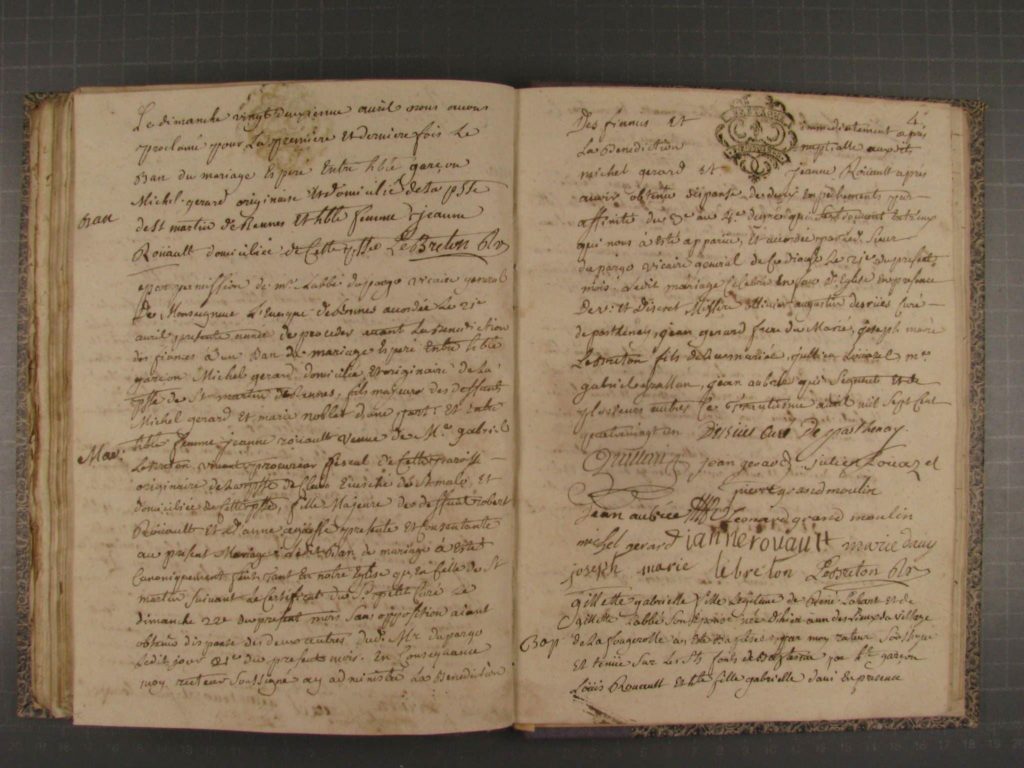 Le dimanche vingt deuxieme avril nous avons
proclamé pour La premiere Et derniere fois Le
Ban du mariage Espéré Entre h̃ble garçon
Michel gerard originaire Et domicilié de La psse
Ban
de St martin de Rennes Et h̃ble femme Jeanne
Rouault domiciliée de Cette psse LeBreton Rr
par permission de mr Labbé duparga vicaire general
De Monseigneur L'Eveque de Rennes accordée Le 21e
avril presente année de proceder avant La Benediction
des fiances a un Ban de mariage Espéré Entre h̃ble
garçon Michel gerard domicilié Et originaire de La
psse de St martin de Rennes, fils majeur des deffunts
Michel gerard et marie noblet d'une part Et Entre
Mar.
h̃ble femme jeanne rouault veuve de Mre gabriel
LeBreton vivant procureur fiscal de Cette paroisse
originaire de La psse de Eveché de St malo Et
domiciliée de Cette psse, fille Majeure des deffunts robert
Rouault Et d'anne presente Et Consentante
au present Mariage Ledit Ban de mariage a Esté
Canoniquement fait tant En notre Eglise qu'en Celle de St
martin Suivant Le Certificat du Sr petit Curé Le
dimanche 22e du present mois San opposition aiant
obtenu dispanse des deux autres dudt Mr duparga
Ledit jour 21e du present mois. En Consequance
moy recteur Soussigné ay administré La Benediction
4.
Des fiances Et immediatement apres
La Benediction nuptialle auxdits
michel gerard et Jeanne Rouault apres
avoir obtenu dispanse de deux Enpechements pour
affinités du 3e au 4e degré qui Entreux
qui nous a Esté apparue, Et accordée par Led. Sieur
duparga vicaire general de Ce dioceze Le 21e du present
mois; Ledit mariage Celebré En face d'Eglise En presence
De v: et Discret Missire ollivier auguste desriés Curé
de parthenay, jean gerard frere du Marié, joseph marie
LeBreton fils de La mariée, jullien Louazel mre
gabriel guillon, jean aubrée qui Signent Et de
plusieurs autres Ce trentieme avril mil Sept Cent
quatrevingt un Desriés Curé De parthenay
Guillon jean gerard julien Louazel
pierre grand moulin
jean aubrée Leonard grand moulin
michel gerard janne rouault marie davy
joseph marie lebreton LeBreton Rr
gillette gabrielle fille Legitime de René Lobart et de
gillette Labbé Son Epouse née d'hier au du village
Bap
de La fougerolle a Esté Baptisée par moy recteur Soussigné
Et tenue Sur Les Sts fonts de Bapteme par h̃ble garçon
Louis Rouault Et h̃ble fille gabrielle davi En presence